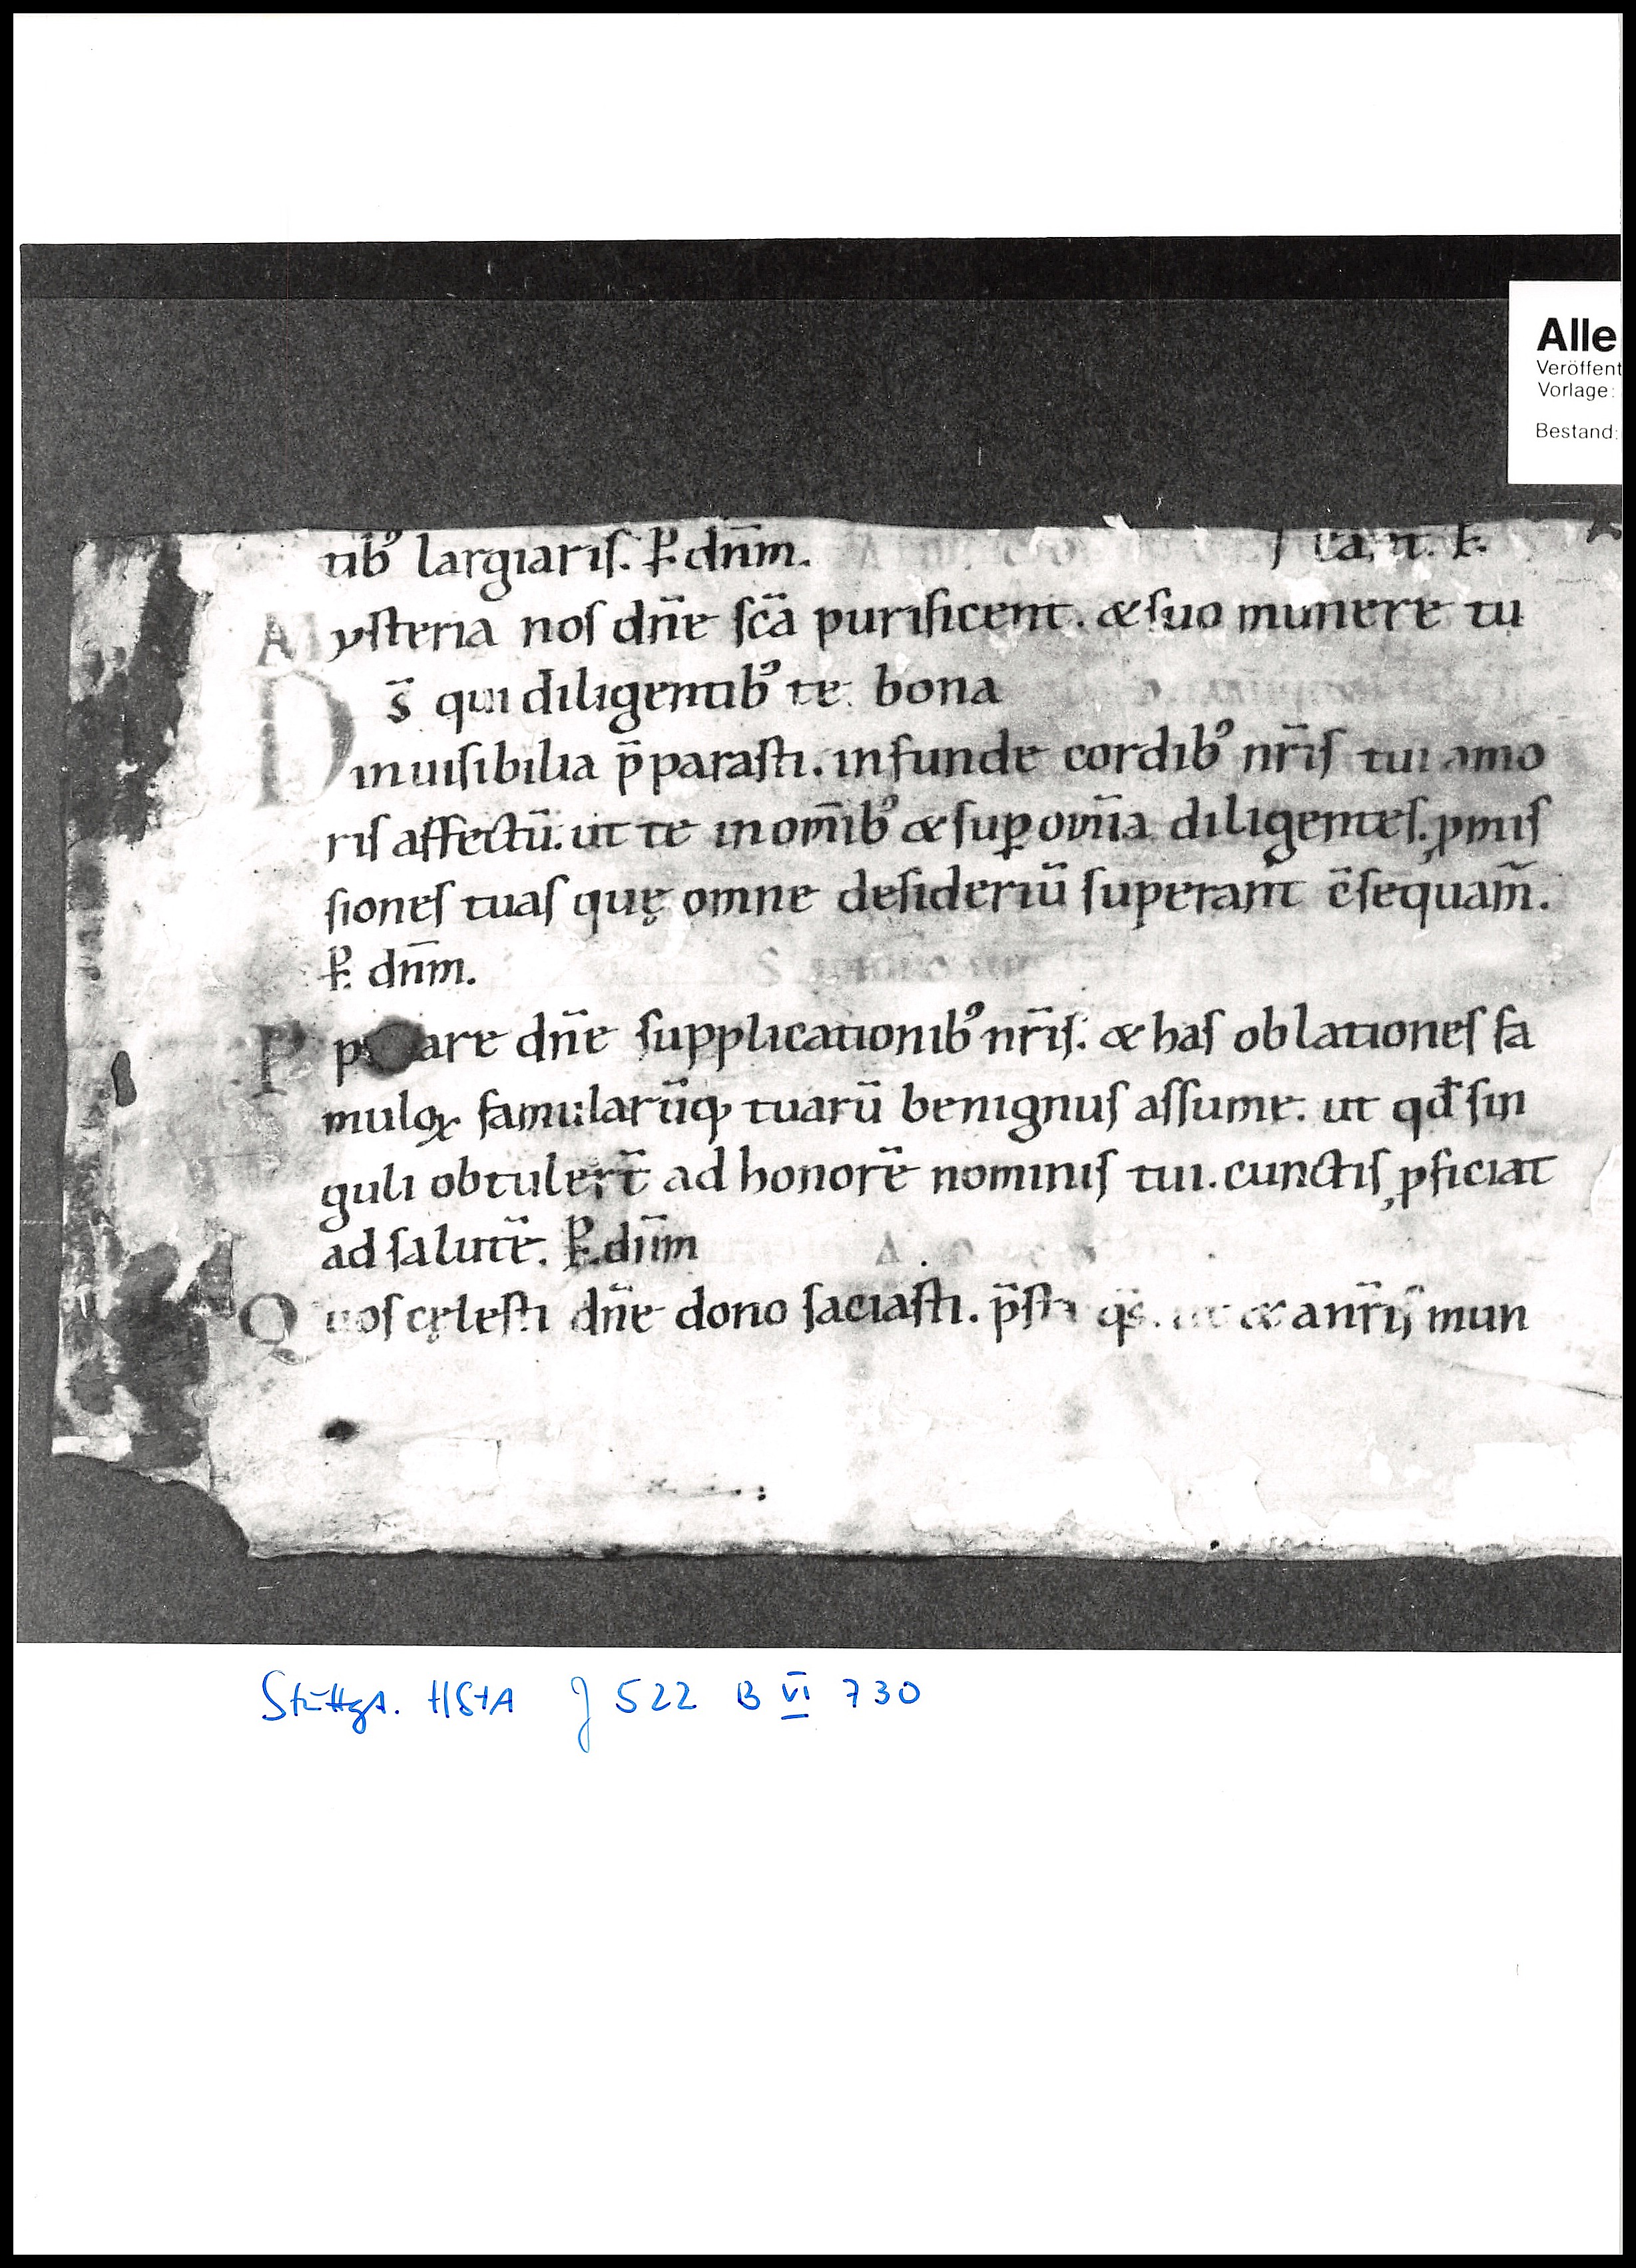 Alle
Veröffent
Vorlage:
Bestand:
tibꝰ largiariſ. P̶. dn̄m.
Myſteria noſ dn̄e ſc̄a purificent. & ſuo munere tu
Ds̄ qui diligentibꝰ te bona
inuiſibilia p̄paraſti. infunde cordibꝰ nr̄iſ tui amo
riſ affectū. ut te in om̄ibꝰ & ſuꝑ om̄ia diligenteſ. ꝓmiſ
ſioneſ tuaſ quę omne deſideriū ſuperant c̄ſequam̄.
P̶. dn̄m.
Pp are dn̄e ſupplicationibꝰ nr̄iſ. & haſ oblationeſ fa
muloꝝ famularūqꝫ tuarū benignuſ aſſume. ut qd̄ ſin
guli obtuler̄t ad honorē nominiſ tui. cunctiſ ꝓficiat
ad ſalutē. P̶. dn̄m
Quoſ cęleſti dn̄e dono ſaciaſti. p̄ſta qs̄. ut & a nr̄iſ mun
Stuttga. HStA J 522 B VI 730